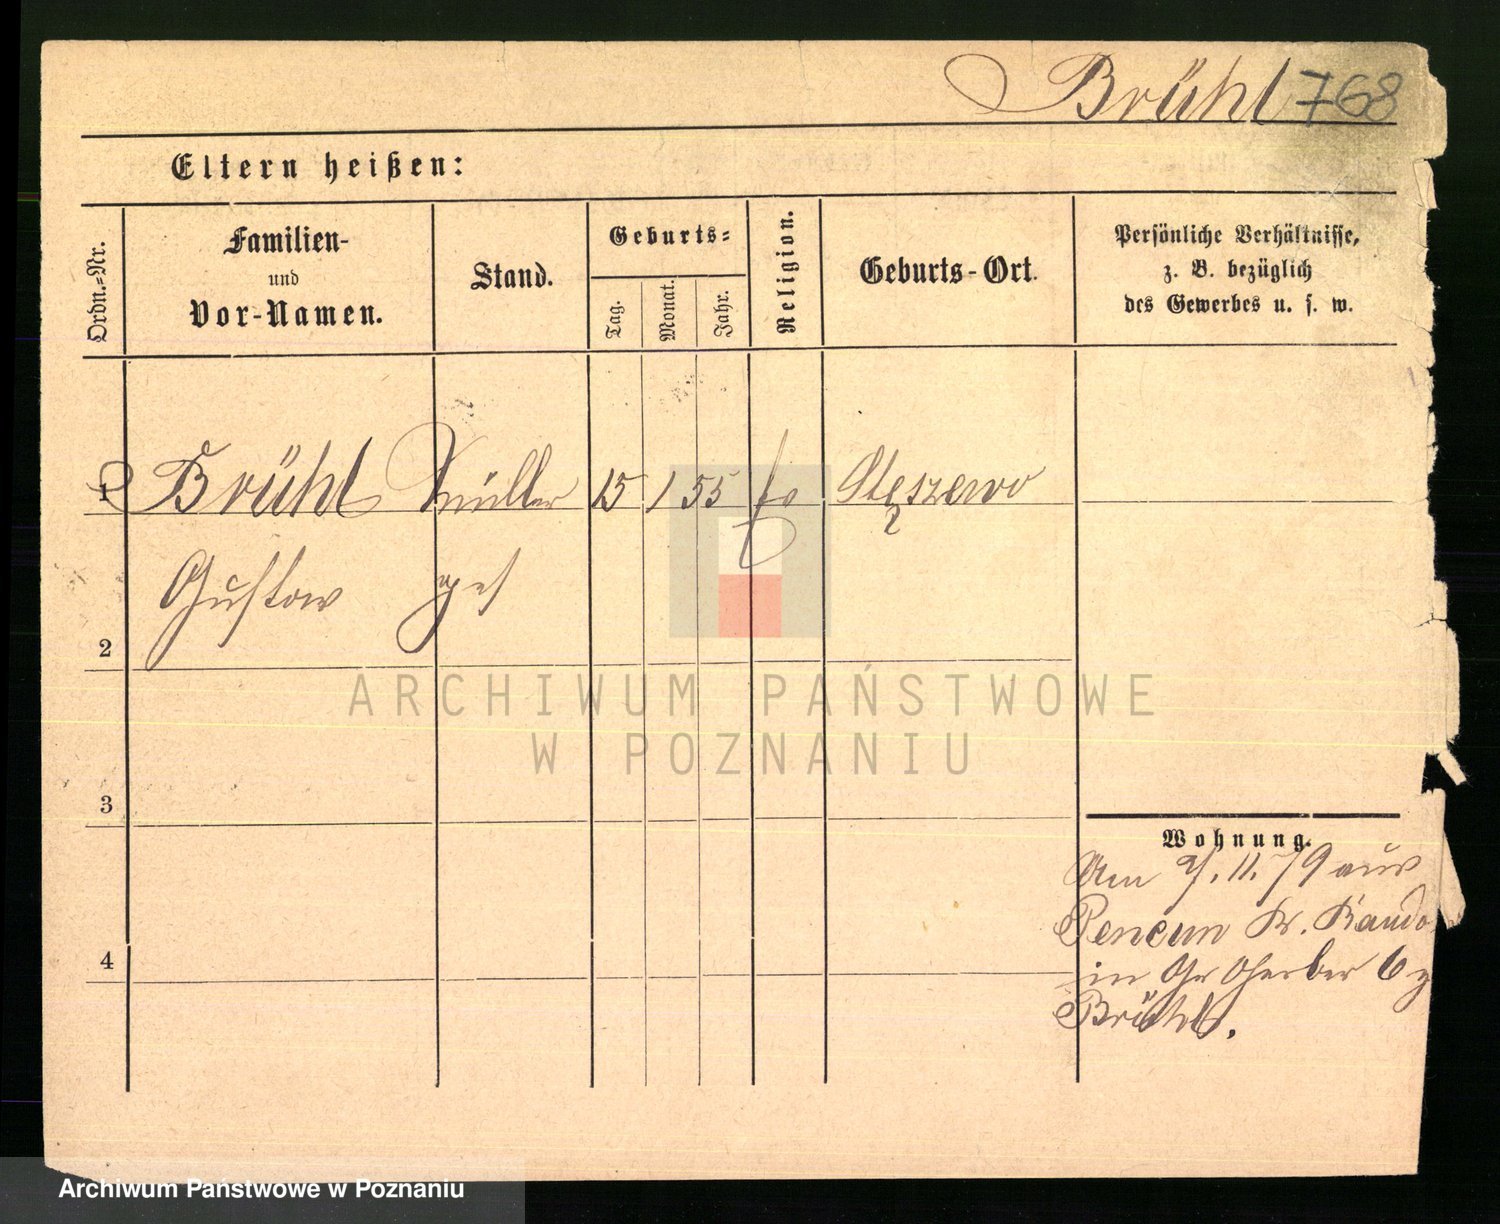 Brühl 768
Eltern heißen:
Ordn.=Nr.
Familien-
und
Vor-Namen.
Stand.
Geburts=
Tag.
Monat.
Jahr.
Religion.
Geburts-Ort.
Persönliche Verhältnisse,
z. B. bezüglich
des Gewerbes u. s. w.
1 Brühl Müller 15 1 55 Stęszewo
Gustav ges
2
3
4
Wohnung.
Am 11. 79 aus
Pencun Kr. Rando
in Gr Gerber 6
Brühl.
ARCHIWUM PAŃSTWOWE
W POZNANIU
Archiwum Państwowe w Poznaniu